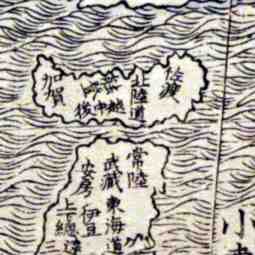 佐渡
北陸道
越中後
加賀
常陸
武蔵 東海道
安房 伊豆
上下總
小